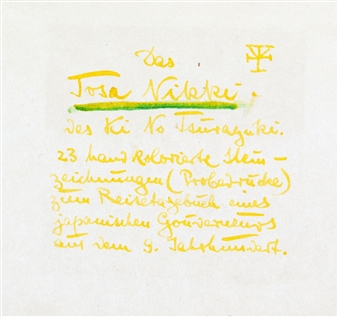 Das
Tosa Nikki.
des Ki No Tsurayuki.
23 handkolorierte Stein-
zeichnungen (Probedrucke)
zum Reisetagebuch eines
japanischen Gouverneurs
aus dem 9. Jahrhundert.